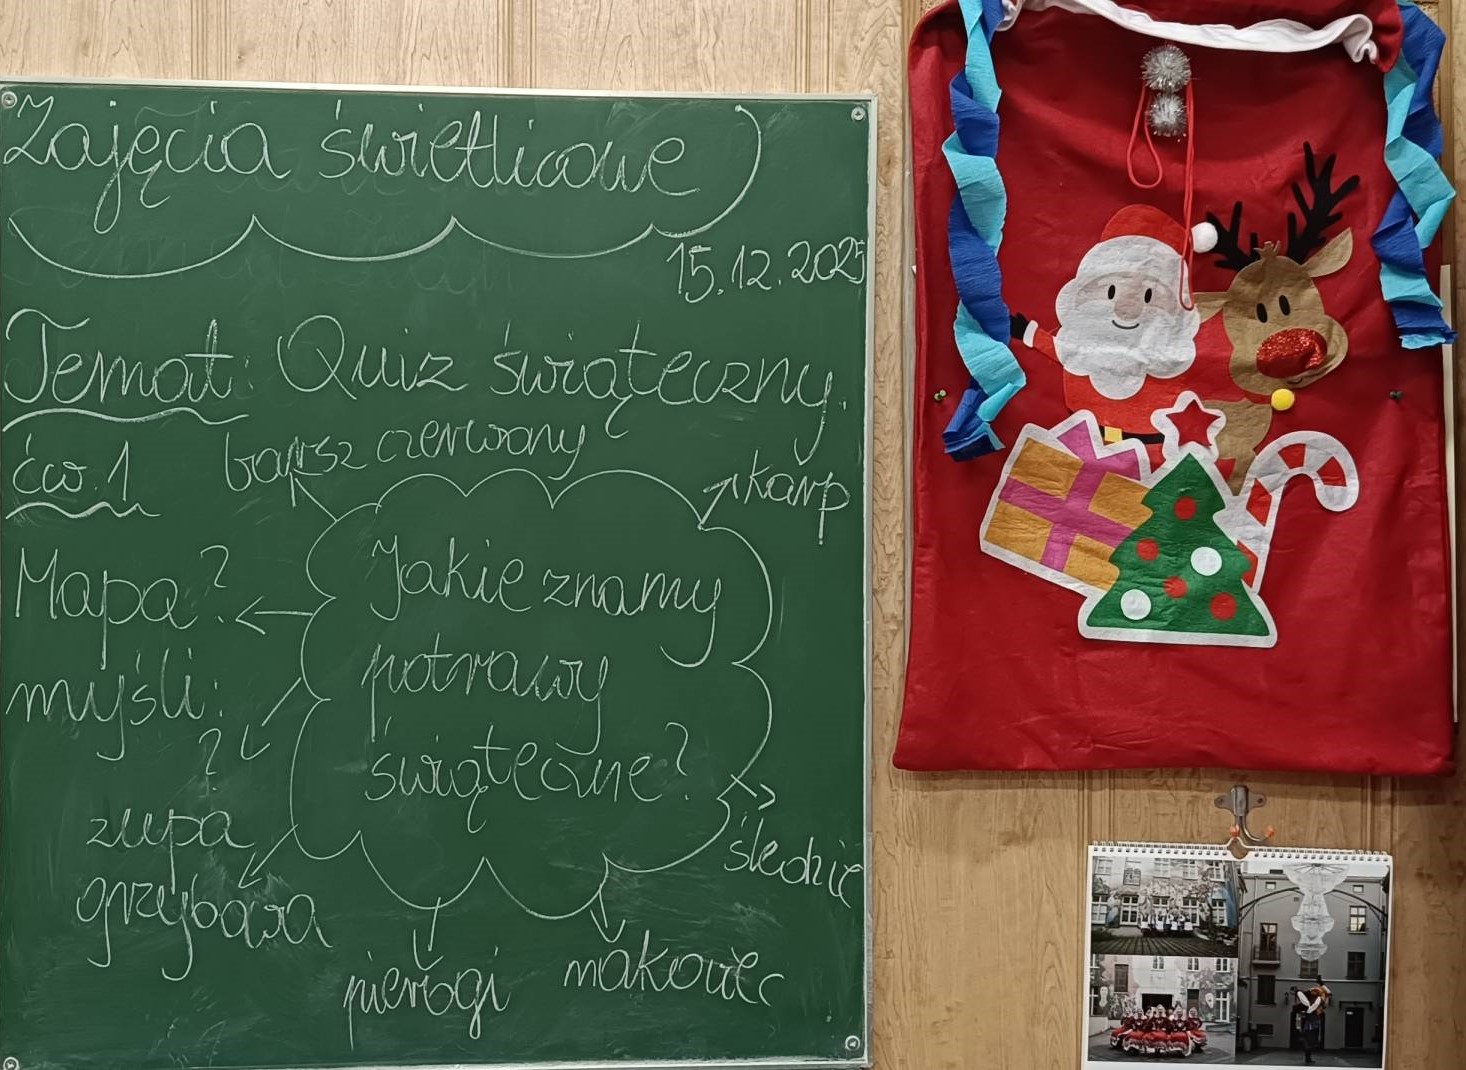 Zajęcia świetlicowe
15.12.2025
Temat: Quiz świąteczny.
ćw. 1
barsz czerwony
karp
Mapa ?
myśli:
?
Jakie znamy
potrawy
świąteczne?
zupa
grzybowa
śledzie
pierogi
makowiec